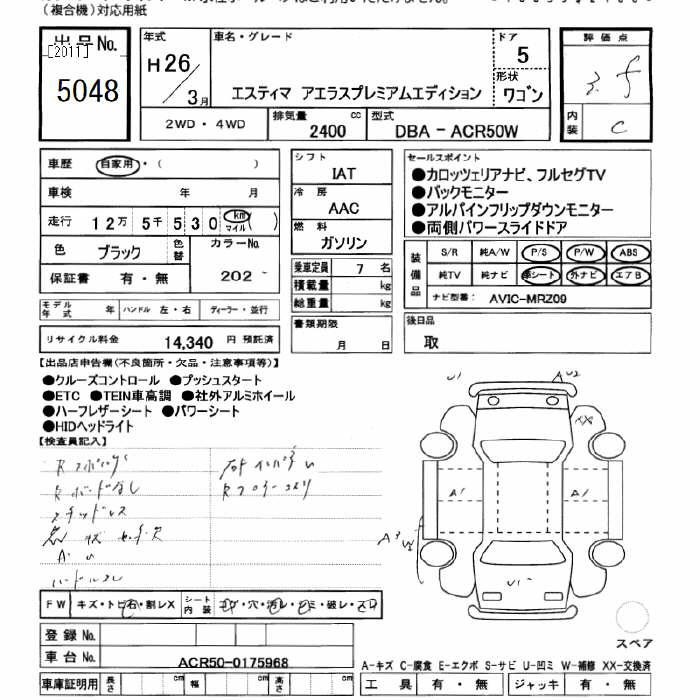 (複合機)対応用紙
出品No.
[2011]
5048
年式
H26/3月
車名・グレード
エスティマ アエラスプレミアムエディション
ドア
5
形状
ワゴン
評価点
3.5
内装
C
2WD・4WD
排気量
2400 cc
型式
DBA - ACR50W
車歴 自家用・( )
車検 年 月
走行 12万 5千 530 km マイル ( )
色 ブラック 色替 カラーNo. 202
保証書 有・無
モデル年式 年 ハンドル 左・右 ディーラー・並行
リサイクル料金 14,340 円 預託済
シフト
IAT
冷房
AAC
燃料
ガソリン
乗車定員 7 名
積載量 kg
総重量 kg
書類期限
月 日
セールスポイント
●カロッツェリアナビ、フルセグTV
●バックモニター
●アルパインフリップダウンモニター
●両側パワースライドドア
装備品
S/R 純A/W P/S P/W ABS
純TV 純ナビ 革シート 外ナビ エアB
ナビ型番: AVIC-MRZ09
後日品
取
【出品店申告欄(不良箇所・欠品・注意事項等)】
●クルーズコントロール ●プッシュスタート
●ETC ●TEIN車高調 ●社外アルミホイール
●ハーフレザーシート ●パワーシート
●HIDヘッドライト
【検査員記入】
スタッドレス
U1 A U2
XX
A1 A1
A3
U1
FW キズ・トビ石・割レX シート内装 コゲ・穴・汚レ・シミ・破レ・スレ
登録No.
車台No. ACR50-0175968
車庫証明用 長さ cm 幅 cm 高さ cm
スペア
A-キズ C-腐食 E-エクボ S-サビ U-凹ミ W-補修 XX-交換済
工具 有・無 ジャッキ 有・無